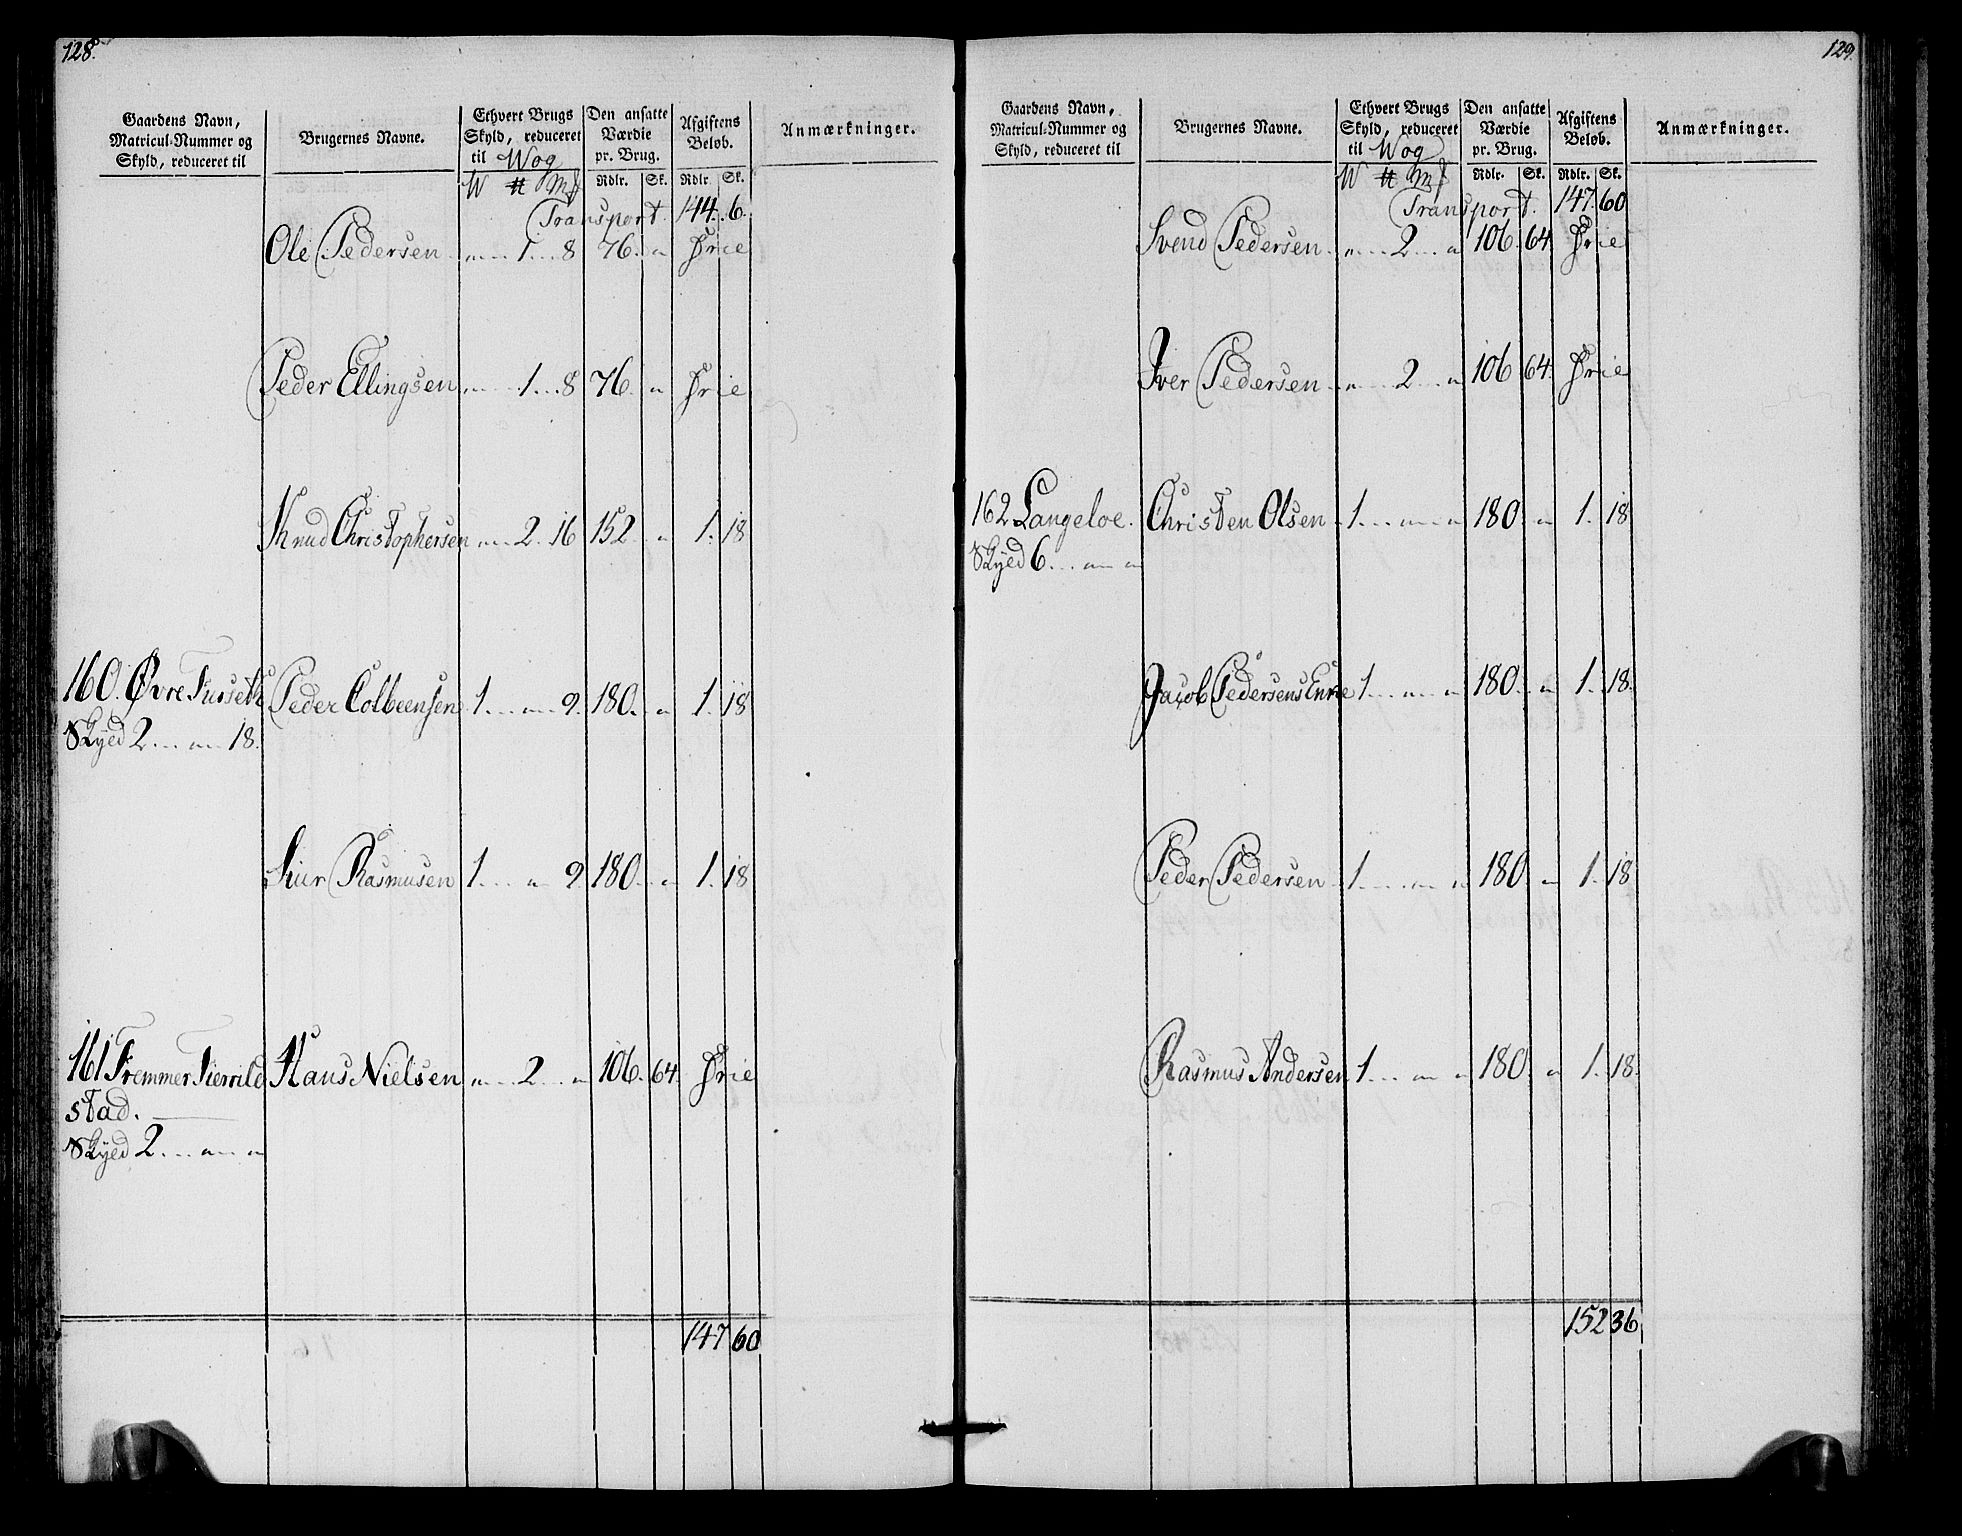 128.
Gaardens Navn, Matricul-Nummer og Skyld, reduceret til
Brugernes Navne.
Ethvert Brugs Skyld, reduceret til Wog
W ℔ mk
Den ansatte Værdie pr. Brug.
Rdlr. Sk.
Afgiftens Beløb.
Rdlr. Sk.
Anmærkninger.
Transport. 144. 6.
Ole Pedersen „ 1 8 76. „ Frie
Peder Ellingsen „ 1 8 76. „ Frie
Knud Christophersen „ 2. 16 152. „ 1. 18
160. Øvre Fusseth Peder Colbeensen 1 „ 9. 180. „ 1. 18
Skyed 2 „ 18.
Siur Rasmusen 1 „ 9 180. „ 1. 18
161 Fremmer Fierrild Hans Nielsen „ 2 „ 106. 64. Frie
stad.
Skyed 2 „ „
147 60
129.
Gaardens Navn, Matricul-Nummer og Skyld, reduceret til
Brugernes Navne.
Ethvert Brugs Skyld, reduceret til Wog
W ℔ mk
Den ansatte Værdie pr. Brug.
Rdlr. Sk.
Afgiftens Beløb.
Rdlr. Sk.
Anmærkninger.
Transport. 147. 60
Svend Pedersen „ 2 „ 106. 64. Frie
Iver Pedersen „ 2 „ 106 64. Frie
162 Langeloe. Christen Olsen 1 „ „ 180. „ 1. 18
Skyed 6 „ „
Jacob Pedersens Enke 1 „ „ 180. „ 1. 18.
Peder Pedersen 1 „ „ 180. „ 1. 18
Rasmus Andersen 1 „ „ 180. „ 1. 18.
152 36